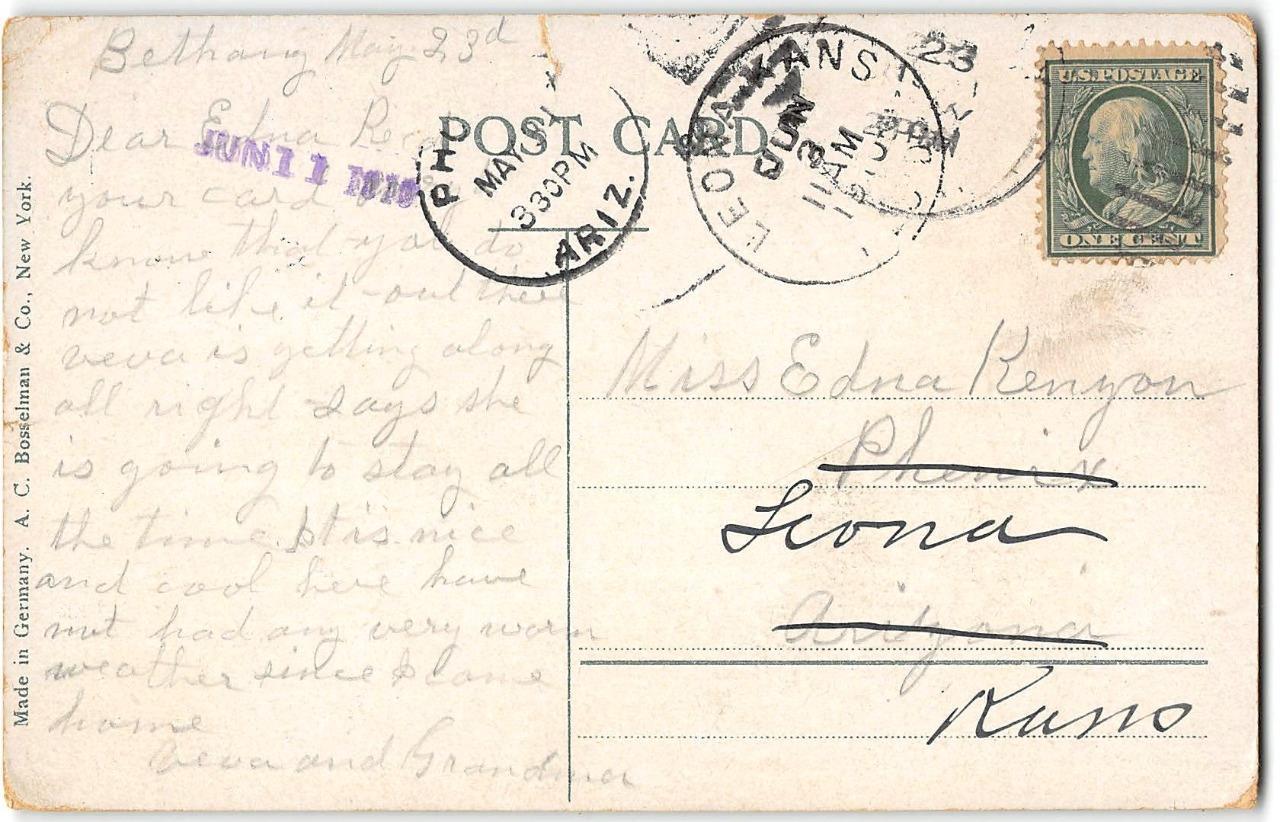 Bethany May 23d
Dear Edna Rec
your card
know that you do
not like it out there
veva is getting along
all right says she
is going to stay all
the time It is nice
and cool here have
not had any very warm
weather since I came
home
Veva and Grandma
Made in Germany. A. C. Bosselman & Co., New York.
JUN 11 1910
POST CARD
PHO
MAY 31
330PM
ARIZ.
LEONA KANS
JUN
3
11 AM
23
PM
U.S. POSTAGE
ONE CENT
Miss Edna Kenyon
Phenix
Leona
Arizona
Kans